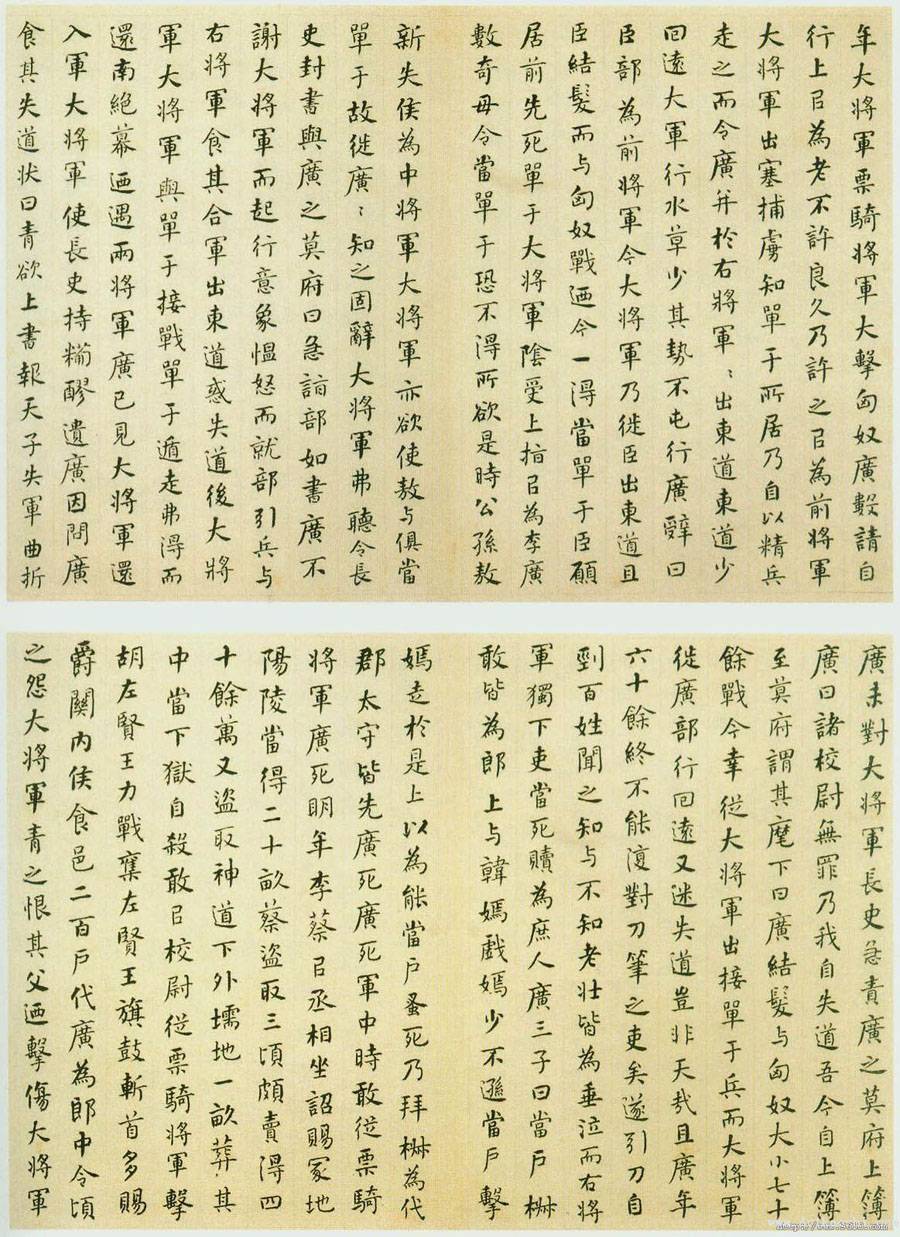 年大將軍票騎將軍大擊匈奴廣數請自
行上㠯為老不許良久乃許之㠯為前將軍
大將軍出塞捕虜知單于所居乃自以精兵
走之而令廣并於右將軍〻出東道東道少
回遠大軍行水草少其勢不屯行廣辭曰
臣部為前將軍今大將軍乃徙臣出東道且
臣結髮而与匈奴戰迺今一得當單于臣願
居前先死單于大將軍陰受上指㠯為李廣
數奇毋令當單于恐不得所欲是時公孫敖
新失侯為中將軍大將軍亦欲使敖与俱當
單于故徙廣〻知之固辭大將軍弗聽令長
史封書與廣之莫府曰急詣部如書廣不
謝大將軍而起行意象慍怒而就部引兵与
右將軍食其合軍出東道惑失道後大將
軍大將軍與單于接戰單于遁走弗得而
還南絕幕迺遇兩將軍廣已見大將軍還
入軍大將軍使長史持糒醪遺廣因問廣
食其失道狀曰青欲上書報天子失軍曲折
廣未對大將軍長史急責廣之莫府上簿
廣曰諸校尉無罪乃我自失道吾今自上簿
至莫府謂其麾下曰廣結髮与匈奴大小七十
餘戰今幸從大將軍出接單于兵而大將軍
徙廣部行回遠又迷失道豈非天哉且廣年
六十餘終不能復對刀筆之吏矣遂引刀自
剄百姓聞之知与不知老壯皆為垂泣而右將
軍獨下吏當死贖為庶人廣三子曰當戶椒
敢皆為郎上与韓嫣戲嫣少不遜當戶擊
嫣走於是上以為能當戶蚤死乃拜椒為代
郡太守皆先廣死廣死軍中時敢從票騎
將軍廣死明年李蔡㠯丞相坐詔賜冢地
陽陵當得二十畝蔡盜取三頃頗賣得四
十餘萬又盜取神道下外壖地一畝葬其
中當下獄自殺敢㠯校尉從票騎將軍擊
胡左賢王力戰奪左賢王旗鼓斬首多賜
爵關內侯食邑二百戶代廣為郎中令頃
之怨大將軍青之恨其父迺擊傷大將軍